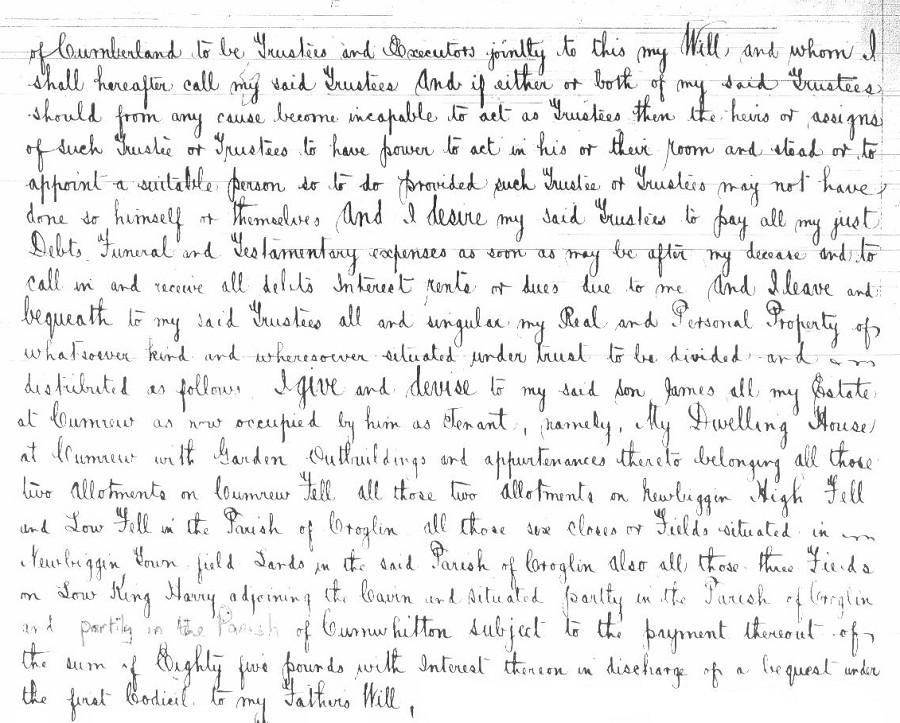 of Cumberland to be Trustees and Executors jointly to this my Will and whom I
shall hereafter call my said Trustees And if either or both of my said Trustees
should from any cause become incapable to act as Trustees then the heirs or assigns
of such Trustee or Trustees to have power to act in his or their room and stead or to
appoint a suitable person so to do provided such Trustee or Trustees may not have
done so himself or themselves And I desire my said Trustees to pay all my just
Debts Funeral and Testamentary expenses as soon as may be after my decease and to
call in and receive all debts Interest rents or dues due to me And I leave and
bequeath to my said Trustees all and singular my Real and Personal Property of
whatsoever kind and wheresoever situated under trust to be divided and
distributed as follows I give and devise to my said son James all my Estate
at Cumrew as now occupied by him as Tenant, namely, My Dwelling House
at Cumrew with Garden Outbuildings and appurtenances thereto belonging all those
two allotments on Cumrew Fell all those two allotments on Newbiggin High Fell
and Low Fell in the Parish of Croglin all those six closes or Fields situated in
Newbiggin Town field Lands in the said Parish of Croglin Also all those three Fields
on Low King Harry adjoining the Cairn and situated partly in the Parish of Croglin
and partly in the Parish of Cumwhitton subject to the payment thereout of
the sum of Eighty five pounds with Interest thereon in discharge of a bequest under
the first Codicil to my Fathers Will,